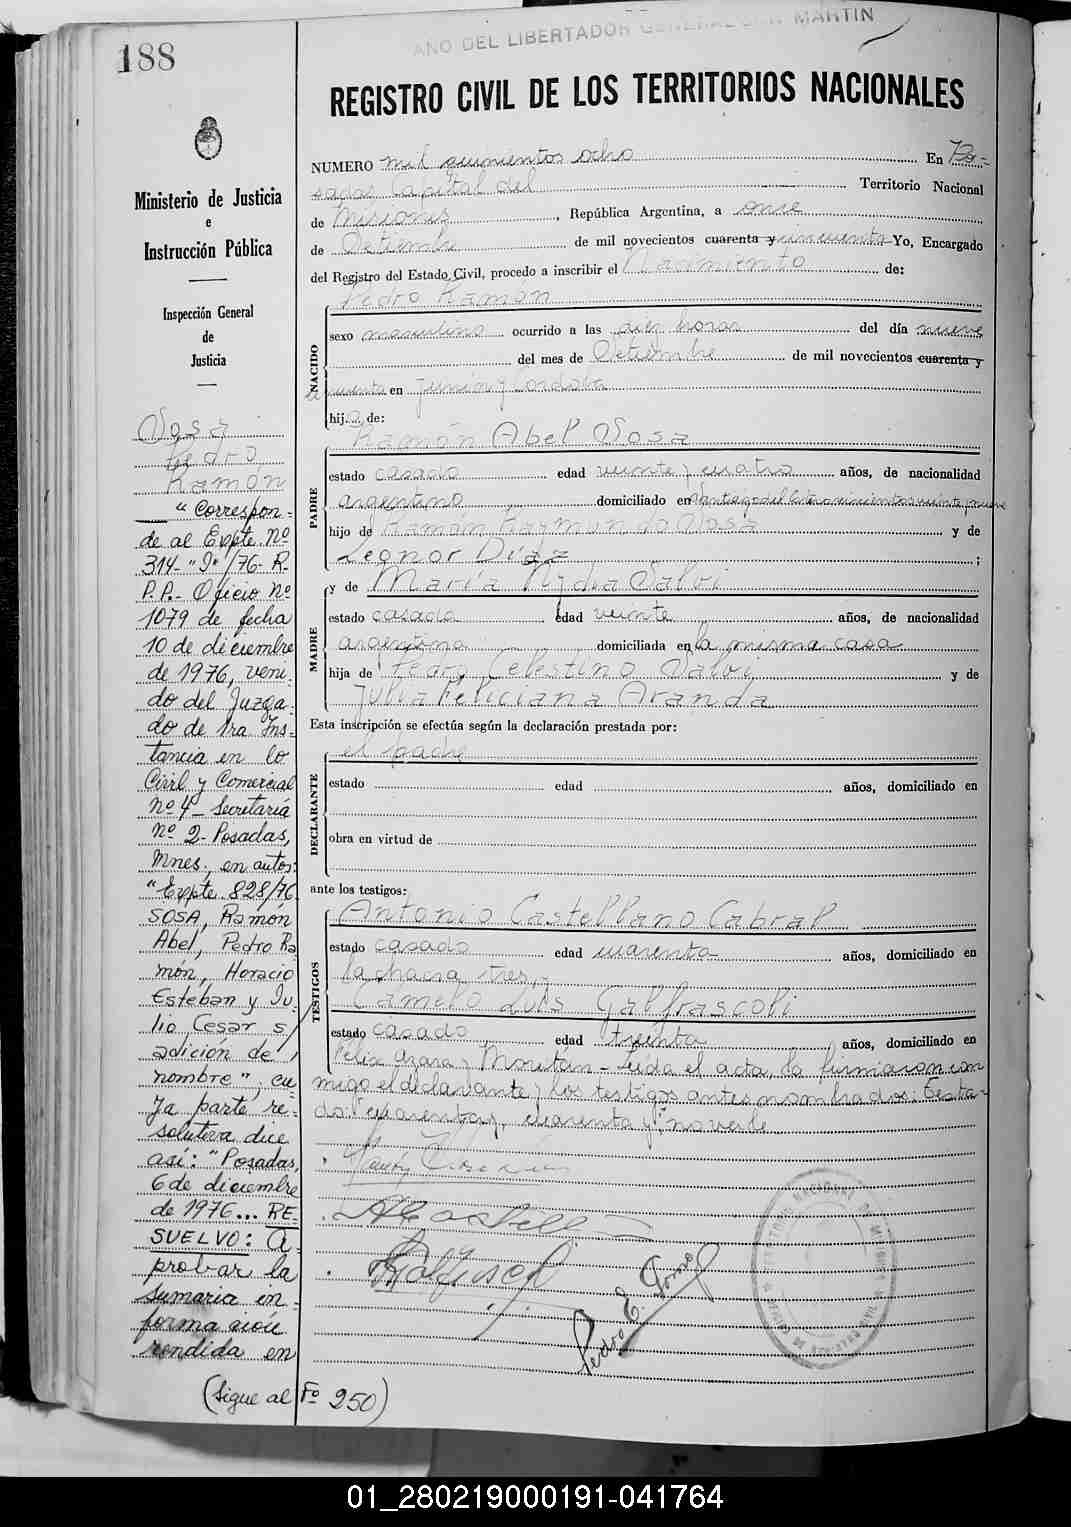 188
AÑO DEL LIBERTADOR GENERAL SAN MARTIN
REGISTRO CIVIL DE LOS TERRITORIOS NACIONALES
Ministerio de Justicia
e
Instrucción Pública
Inspección General
de
Justicia
Sosa
Pedro
Ramón
"Correspon-
de al Expte. Nº
314-"I"/76-R.
P.P.- Oficio Nº
1079 de fecha
10 de diciembre
de 1976, veni-
do del Juzga-
do de 1ra Ins-
tancia en lo
Civil y Comercial
Nº 4 - Secretaría
Nº 2- Posadas,
Mnes., en autos:
"Expte. 828/76
SOSA, Ramon
Abel, Pedro Ra
món, Horacio
Esteban y Ju-
lio Cesar s/
adición de
nombre", cu-
ya parte re-
solutiva dice
así: "Posadas,
6 de diciembre
de 1976... RE-
SUELVO: A-
probar la
sumaria in-
formacion
rendida en
(Sigue al Fº 250)
NUMERO mil quinientos ocho En Po-
sadas Capital del Territorio Nacional
de Misiones, República Argentina, a once
de Setiembre de mil novecientos cuarenta y cincuenta Yo, Encargado
del Registro del Estado Civil, procedo a inscribir el Nacimiento de:
NACIDO
Pedro Ramón
sexo masculino ocurrido a las diez horas del día nueve
del mes de Setiembre de mil novecientos cuarenta y
cincuenta en Junin y Cordoba
hijo de:
PADRE
Ramón Abel Sosa
estado casado edad veinte y cuatro años, de nacionalidad
argentino domiciliado en Santiago del Estero novecientos veinte y nueve
hijo de Ramón Raymundo Sosa y de
Leonor Díaz ;
MADRE
y de María Nydia Salvi
estado casada edad veinte años, de nacionalidad
argentina domiciliada en la misma casa
hija de Pedro Celestino Salvi y de
Julia Feliciana Aranda
Esta inscripción se efectúa según la declaración prestada por:
DECLARANTE
el padre
estado edad años, domiciliado en
obra en virtud de
ante los testigos:
TESTIGOS
Antonio Castellano Cabral
estado casado edad cuarenta años, domiciliado en
la chacra tres, y
Camelo Luis Galfrascoli
estado casado edad treinta años, domiciliado en
Felix Azara y Moritán - Leida el acta, la firmaron con
migo el declarante y los testigos antes nombrados: Testa-
do: "cuarenta y, cuarenta y", no vale
Pedro E. Gomez
01_280219000191-041764